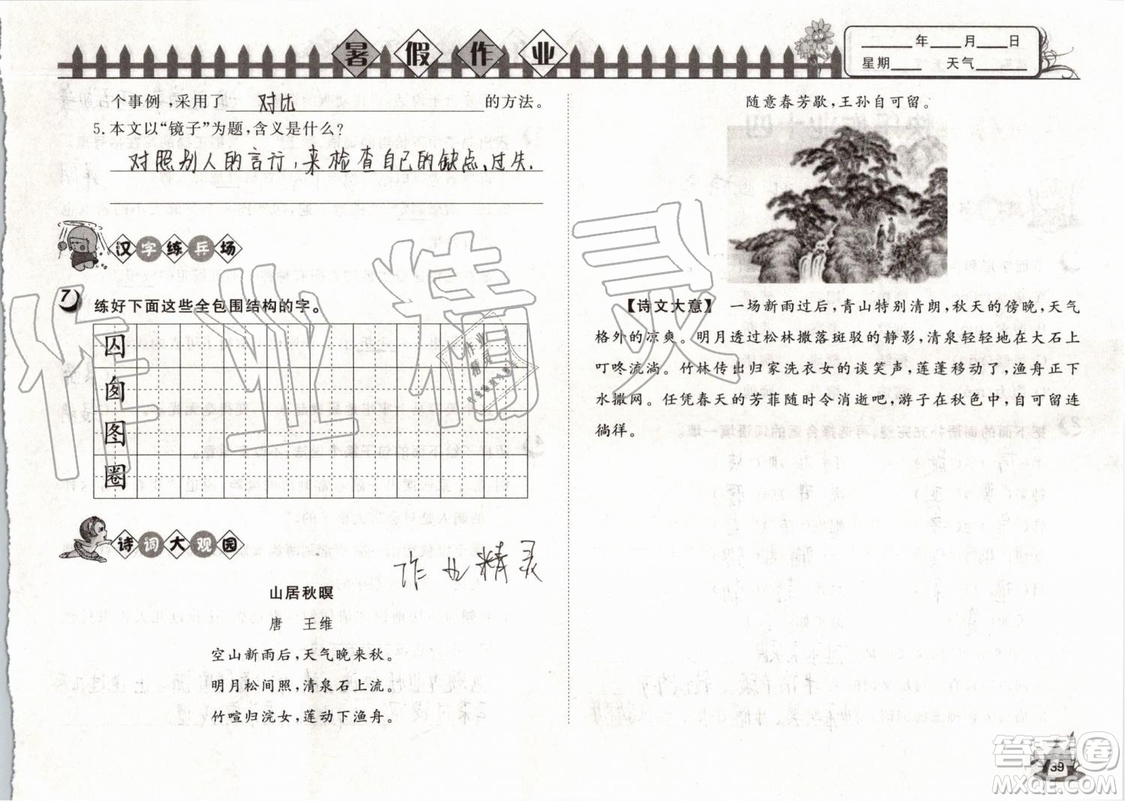 暑假作业
____年____月____日
星期____ 天气____
个事例,采用了 对比 的方法。
5.本文以“镜子”为题,含义是什么?
对照别人的言行,来检查自己的缺点,过失.
汉字练兵场
7 练好下面这些全包围结构的字。
囚
囱
图
圈
诗词大观园
作业精灵
山居秋暝
唐 王维
空山新雨后,天气晚来秋。
明月松间照,清泉石上流。
竹喧归浣女,莲动下渔舟。
随意春芳歇,王孙自可留。
【诗文大意】 一场新雨过后,青山特别清朗,秋天的傍晚,天气
格外的凉爽。明月透过松林撒落斑驳的静影,清泉轻轻地在大石上
叮咚流淌。竹林传出归家洗衣女的谈笑声,莲蓬移动了,渔舟正下
水撒网。任凭春天的芳菲随时令消逝吧,游子在秋色中,自可留连
徜徉。
39
作业精灵
答案圈
MXQE.COM